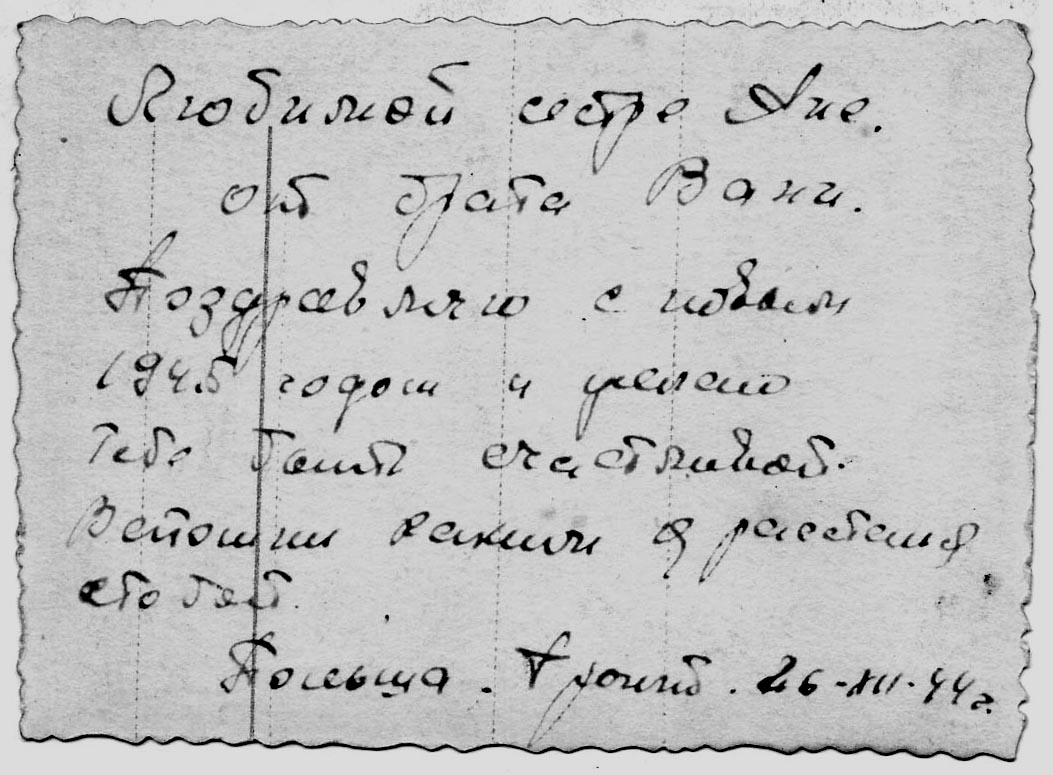 Любимой сестре Ане.
от брата Вани.
Поздравляю с новым
1945 годом и желаю
тебе быть счастливой.
Вспомни каким я расстался
с тобой.
Польша. Фронт. 26-XII-44 г.